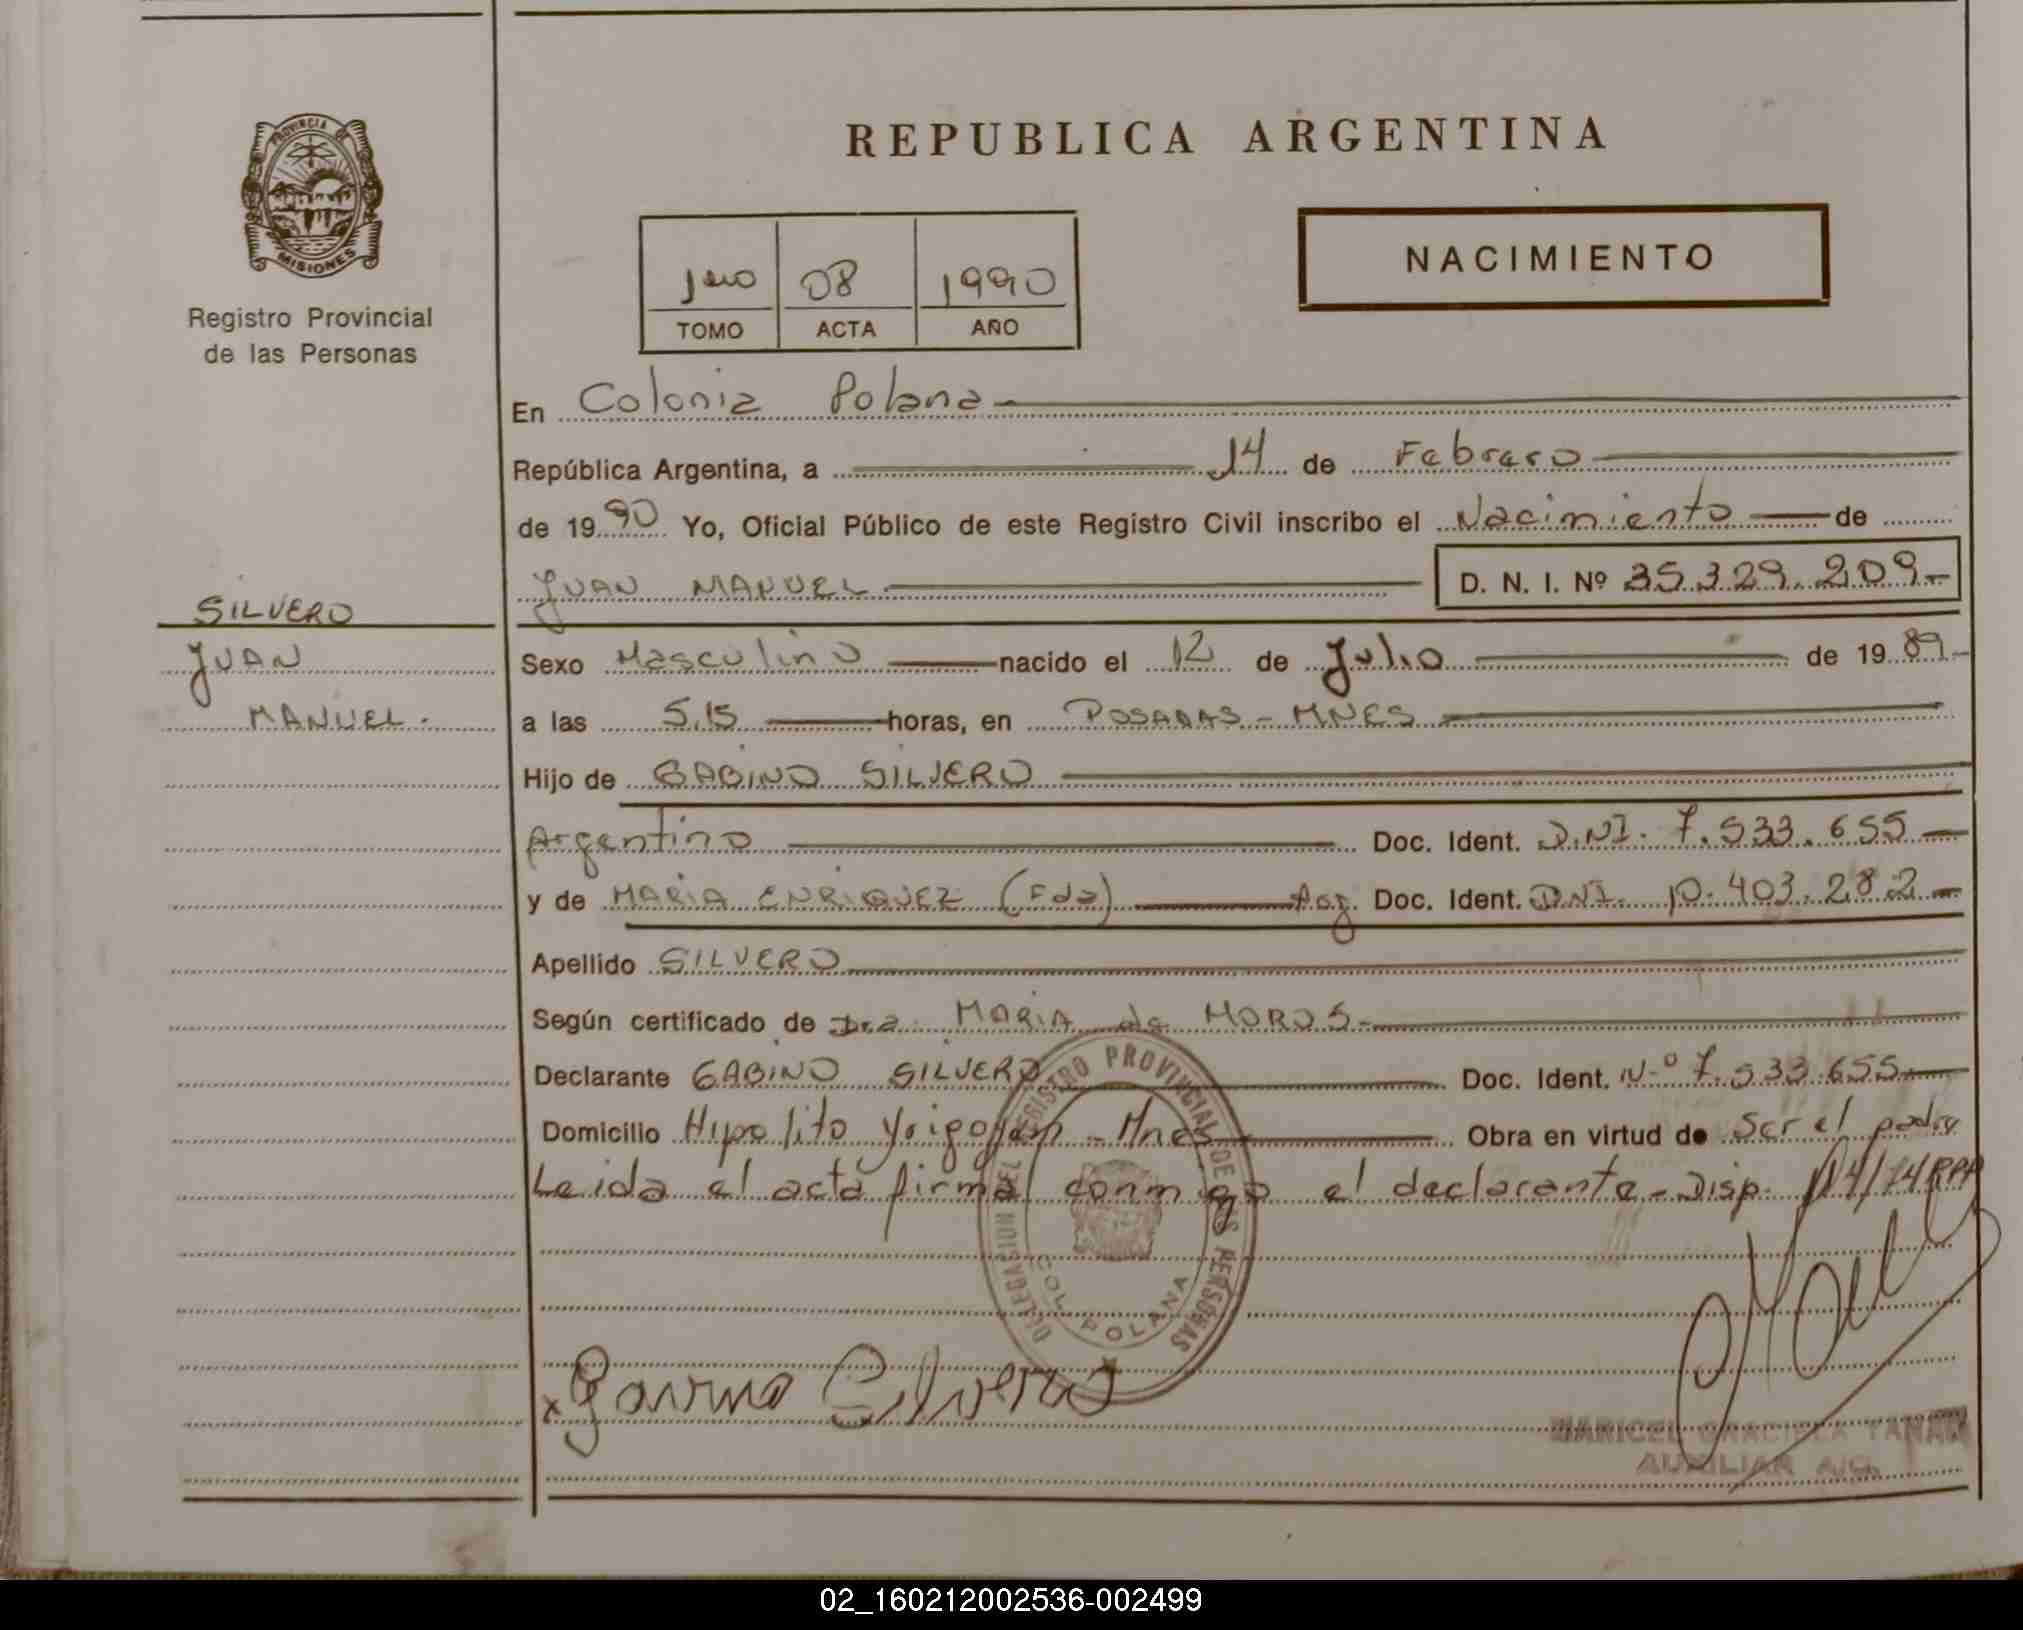 PROVINCIA DE
MISIONES
Registro Provincial
de las Personas
REPUBLICA ARGENTINA
NACIMIENTO
1ero 08 1990
TOMO ACTA AÑO
En Colonia Polana
República Argentina, a 14 de Febrero
de 1990 Yo, Oficial Público de este Registro Civil inscribo el Nacimiento de
JUAN MANUEL D. N. I. Nº 35.329.209-
SILVERO
JUAN
MANUEL.
Sexo Masculino nacido el 12 de Julio de 1989-
a las 5.15 horas, en POSADAS - MNES
Hijo de GABINO SILVERO
Argentino Doc. Ident. D.NI. 7.533.655-
y de MARIA ENRIQUEZ (Fda) Arg. Doc. Ident. DNI. 10.403.282-
Apellido SILVERO
Según certificado de Dra. MARIA de MOROS-
Declarante GABINO SILVERO Doc. Ident. N-º 7.533.655
Domicilio Hipolito Yrigoyen - Mnes Obra en virtud de Ser el padre
Leida el acta firma conmigo el declarante - Disp. 114/74 RPP
DELEGACION DEL REGISTRO PROVINCIAL DE LAS PERSONAS
COL. POLANA
x Gavino Cilvero
MARICEL GRACIELA
AUXILIAR
02_160212002536-002499